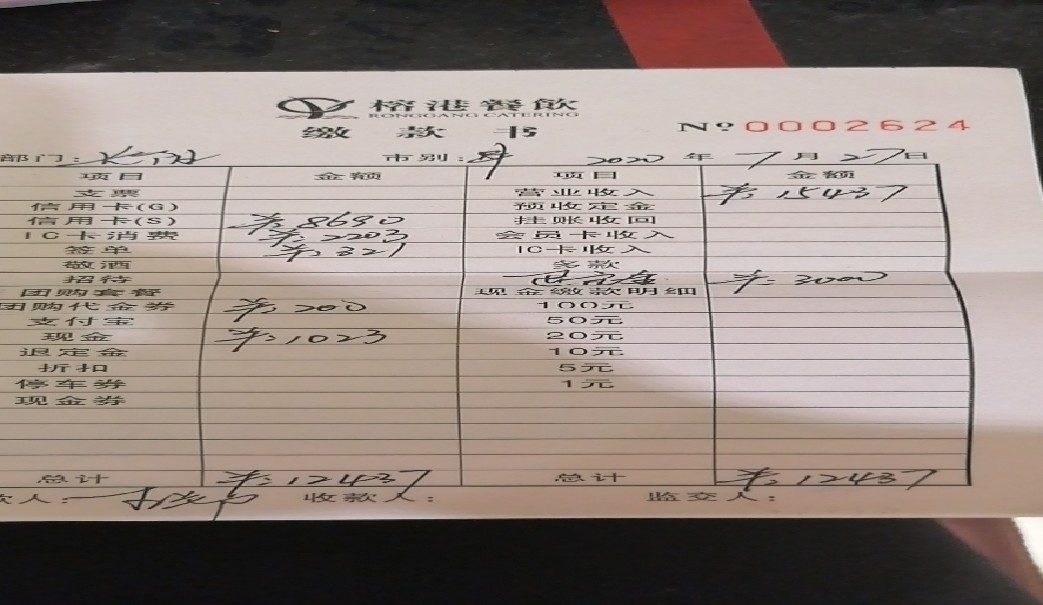 榕港餐飲
RONGGANG CATERING
缴款书
Nº 0002624
部门: 市别: 2020 年 7 月 27 日
项目 金额 项目 金额
支票 营业收入 15437
信用卡(G) 预收定金
信用卡(S) 8690 挂账收回
IC卡消费 2203 会员卡收入
签单 321 IC卡收入
敬酒 多款
招待 3000
团购套餐 现金缴款明细
团购代金券 200 100元
支付宝 50元
现金 1023 20元
退定金 10元
折扣 5元
停车券 1元
现金券
总计 12437 总计 12437
款人: 收款人: 监交人: